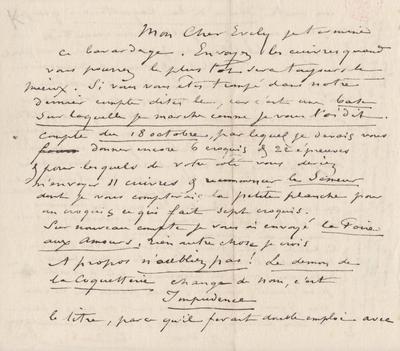 Mon Cher Evely je termine
ce bavardage. Envoyez les cuivres quand
vous pourrez le plus tôt sera toujours le
mieux. Si vous vous êtes trompé dans notre
dernier compte dites le, car c'est une base
sur laquelle je marche comme je vous l'ai dit.
Compte du 18 octobre, par lequel je devais vous
donner encore 6 croquis & 22 épreuves
& pour lesquels de votre côté vous deviez
m'envoyer 11 cuivres & recommencer le Semeur
dont je vous compterais la petite planche pour
un croquis ce qui fait sept croquis.
Sur nouveau compte je vous ai envoyé la Foire
aux Amours, rien autre chose je crois
A propos n'oubliez pas! Le démon de
la Coquetterie change de nom, c'est
Impudence
le titre, parce qu'il ferait double emploi avec